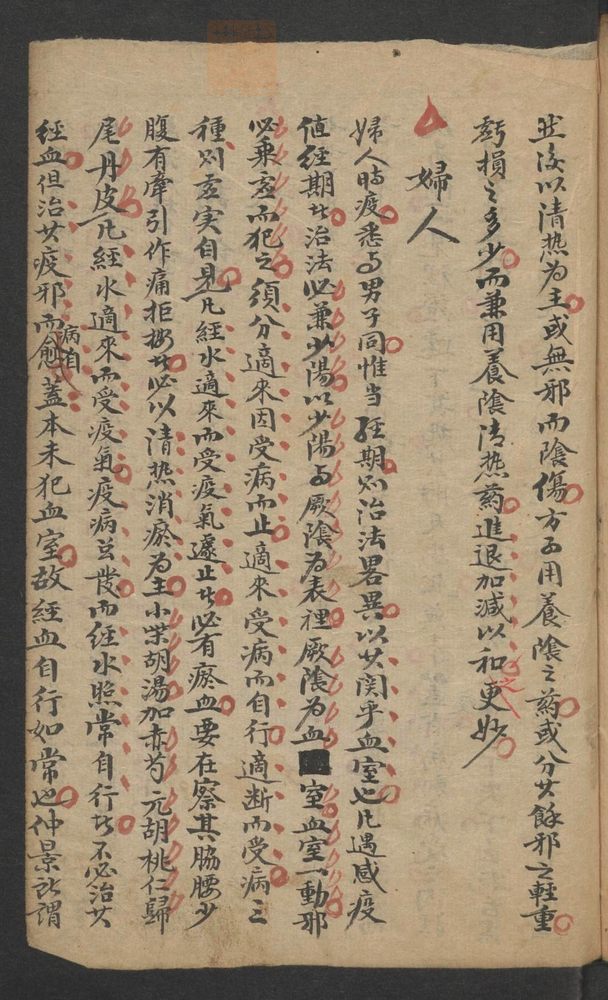 並須以清热为主或無邪而陰傷方可用養陰之葯或分其餘邪之輕重
虧損之多少而兼用養陰清热葯進退加減以和之更妙
婦人
婦人時疫悉与男子同惟当經期則治法畧異以其関乎血室也凡遇感疫
值經期者治法必兼少陽以少陽与厥陰为表裡厥陰为血室血室一動邪
必乗虚而犯之須分適来因受病而止適来受病而自行適断而受病三
種則虚実自見凡經水適来而受疫氣遽止者必有瘀血要在察其脇腰少
腹有牽引作痛拒按者必以清热消瘀为主小柴胡湯加赤芍元胡桃仁歸
尾丹皮凡經水適来而受疫氣疫病並發而經水照常自行者不必治其
經血但治其疫邪而病自愈蓋本未犯血室故經血自行如常也仲景所謂